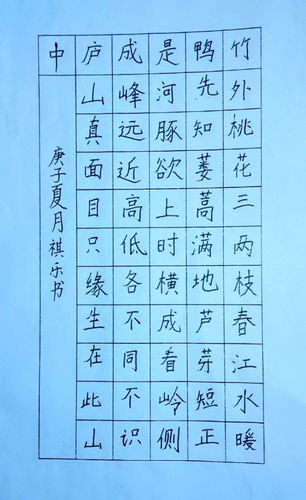 竹外桃花三两枝春江水暖
鸭先知蒌蒿满地芦芽短正
是河豚欲上时横成看岭侧
成峰远近高低各不同不识
庐山真面目只缘生在此山
中
庚子夏月祺乐书